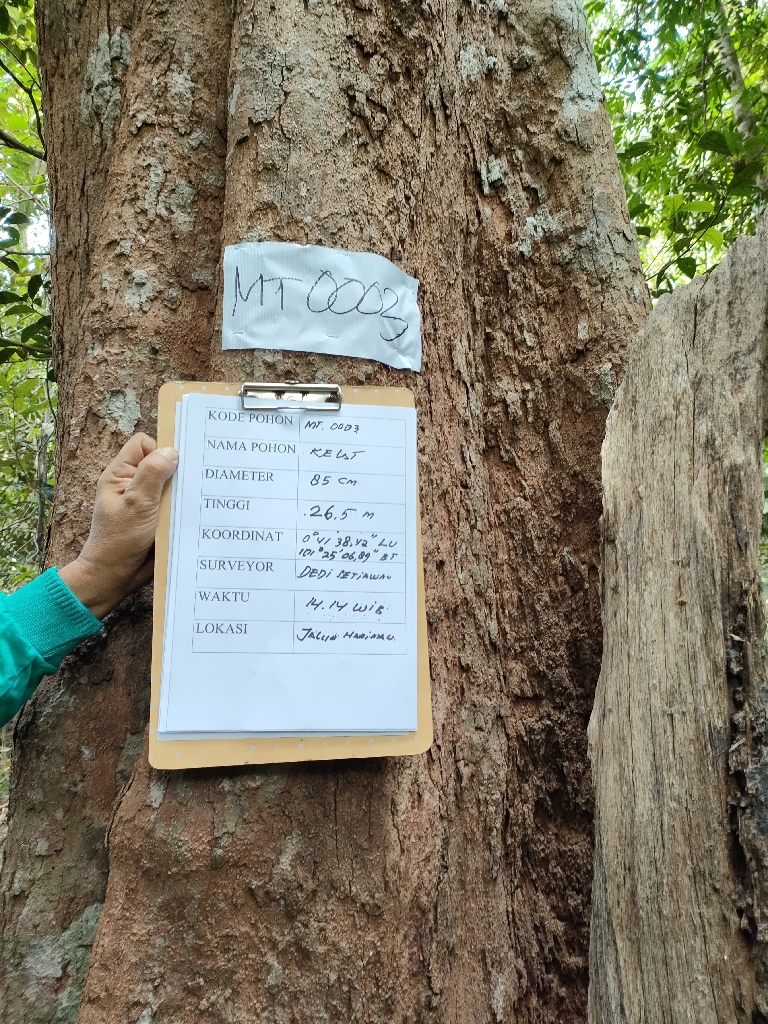 MT 0003
KODE POHON MT. 0003
NAMA POHON KELAT
DIAMETER 85 cm
TINGGI 26,5 m
KOORDINAT 0°41'38,42" LU
101°25'06,89" BT
SURVEYOR DEDI SETIAWAN
WAKTU 14.14 WIB
LOKASI JALUR